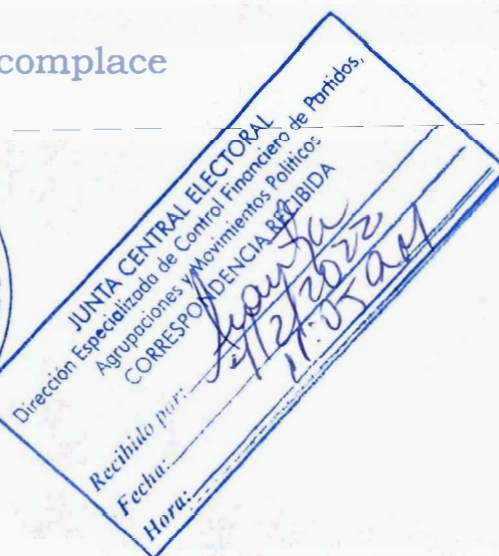 complace
JUNTA CENTRAL ELECTORAL
Dirección Especializada de Control Financiero de Partidos,
Agrupaciones y Movimientos Políticos
CORRESPONDENCIA RECIBIDA
Recibido por:
Fecha: /2/2022
Hora: 11:05 am